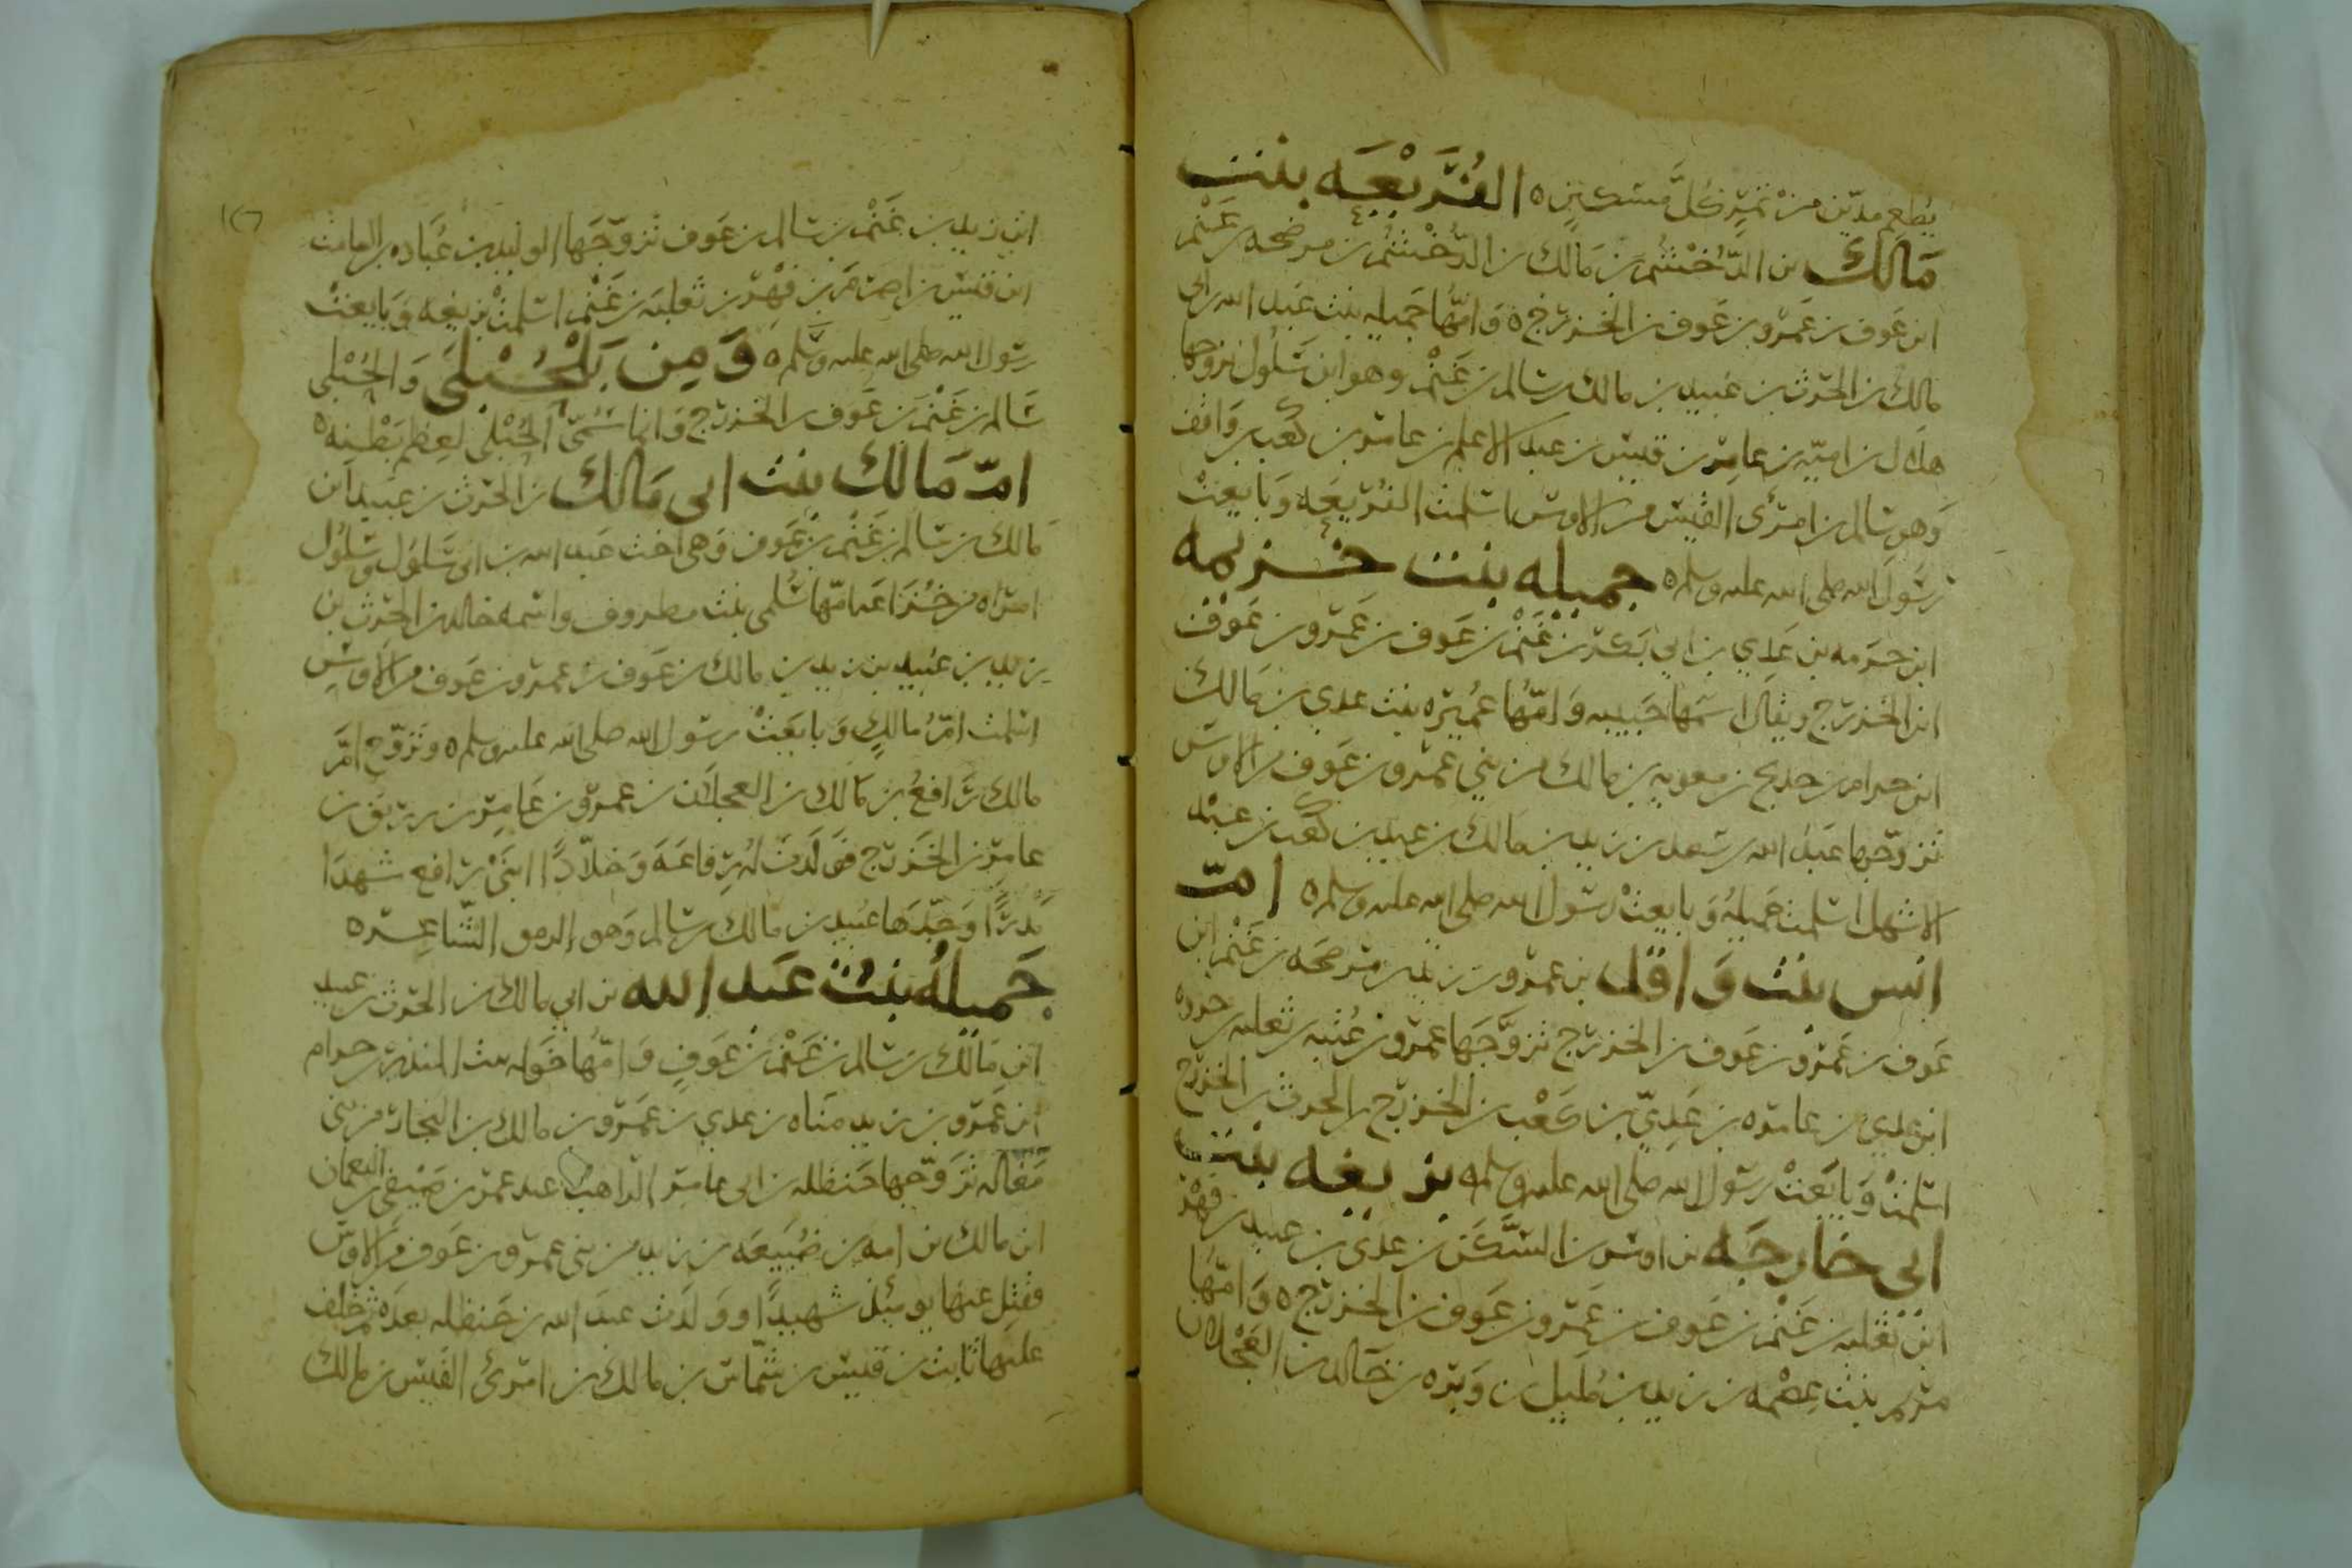 يُطعم مدّين من تمر كل مسكين ه الفُرَيْعَه بنت
مَالك بن الدُّخْشُم بن مَالك بن الدُّخْشُم بن مرضخه بن غَنْم
ابن عَوف بن عَمرو بن عَوف بن الخزرج ه وَامّها جَميله بنت عَبد الله بن ابي
مالك بن الحرث بن عبيد بن مالك بن سالم بن غَنْم وهو ابن سَلُول تزوجها
هلال بن اميّه بن عامر بن قيس بن عبد الاعلم بن عامر بن كعب بن وَاقف
وَهو سالم بن امرئ القيس من الاوس اسلمت الفُريعَه وَبايعتْ
رسُول الله صلى الله عليه وسلم ه جميله بنت خزيمه
ابن حزمه بن عَدي بن ابي بَكر بن غَنْم بن عَوف بن عَمرو بن عَوف
ابن الخزرج ويقال اسمها حَبيبه وَامّها عُميره بنت عدي بن مَالك
ابن حرام بن حديج بن معويه بن مالك من بني عمرو بن عَوف من الاوس
تزوّجها عَبدُ الله بن سَعد بن زيد بن مَالك بن عبيد بن كعَب بن عبْد
الاشهل اسلمت جَميلهُ وَبايعتْ رسُول الله صلى الله عليه وسلم ه امّ
انس بنت وَاقد بن عمرو بن زيد بن مرضخَه بن غَنْم ابن
عَوف بن عَمرو بن عَوف بن الخزرج تزوَّجَها عمرو بن ثعلبه
ابن عدي بن عامره بن عَدِيّ بن كَعْب بن الخزرج بن الحرث بن الخزرج
اسلمتْ وَبايَعتْ رسُول الله صلى الله عليه وسلم ه بزيعه بنت
ابي خارجَه بن اوس بن السَّكَن بن عدي بن عبيد بن فهر
ابن ثعلبه بن غَنْم بن عَوف بن عَمرو بن عَوف بن الخزرج ه وَامّها
مريم بنت عِصْمه بن زيد بن مُليل بن وَبره بن خَالد بن العَجْلان
ابن زيد بن غَنْم بن سالم بن عَوف تزوّجَها الوليد بن عُبَاده بن الصامت
ابن قيس بن اصرَم بن فهْر بن ثعلبه بن غَنْم اسلمتْ بزيعه وَبايعتْ
رسُول الله صلى الله عليه وسلم ه وَمِن بَلْحُبْلَى وَالحُبْلى
سَالم بن غَنْم بن عَوف بن الخزرج وَانما سُمّي الحُبْلى لعِظم بَطْنه ه
امّ مَالك بنت ابي مَالك بن الحرث بن عبيد ابن
مَالك بن سَالم بن غَنْم بن عَوف وَهي اخت عَبد الله بن ابي سَلول وسَلُول
امراه من خُزَاعَه امّها سُلمى بنت مطروف واسمه خالد بن الحرث بن
زيد بن عبيد بن زيد بن مالك بن عَوف بن عمرو بن عَوف من الاوس
اسلمت امُّ مالكٍ وَبايعَتْ رسُول الله صلى الله عليه وسلم ه وتزوّج امَّ
مالك رَافعُ بن مَالك بن العجلان بن عمرو بن عَامر بن زريق بن
عامر بن الخَزرج فَوَلَدَت لهُ رِفاعَه وَخلاّدًا ابنَيْ رافع شهدَا
بَدرًا وَجَدّهَا عَبيد بن مالك بن سالم وَهو الدمق الشاعر ه
جَميلهُ بنتُ عَبد الله بن ابي مالك بن الحرث بن عبيد
ابن مَالك بن سَالم بن غَنْم بن عَوفٍ وَامّها خَوله بنت المنذر بن حرام
ابن عَمرو بن زيد مَنَاه بن عدي بن عَمرو بن مالك بن النجار من بني
مَغاله تزَوّجها حَنظله بن ابي عامر الراهب عبد عمرو بن صَيْفي بن النعمان
ابن مالك بن امه بن ضُبَيعَه بن زيد من بني عمرو بن عَوف من الاوس
فقتِل عنها يومئذ شهيدًا وَوَلدَت عبدَ الله بن حَنظله بعدَه ثم خلف
عليها ثابت بن قيس بن شَمّاس بن مالك بن امرئ القَيس بن مالك